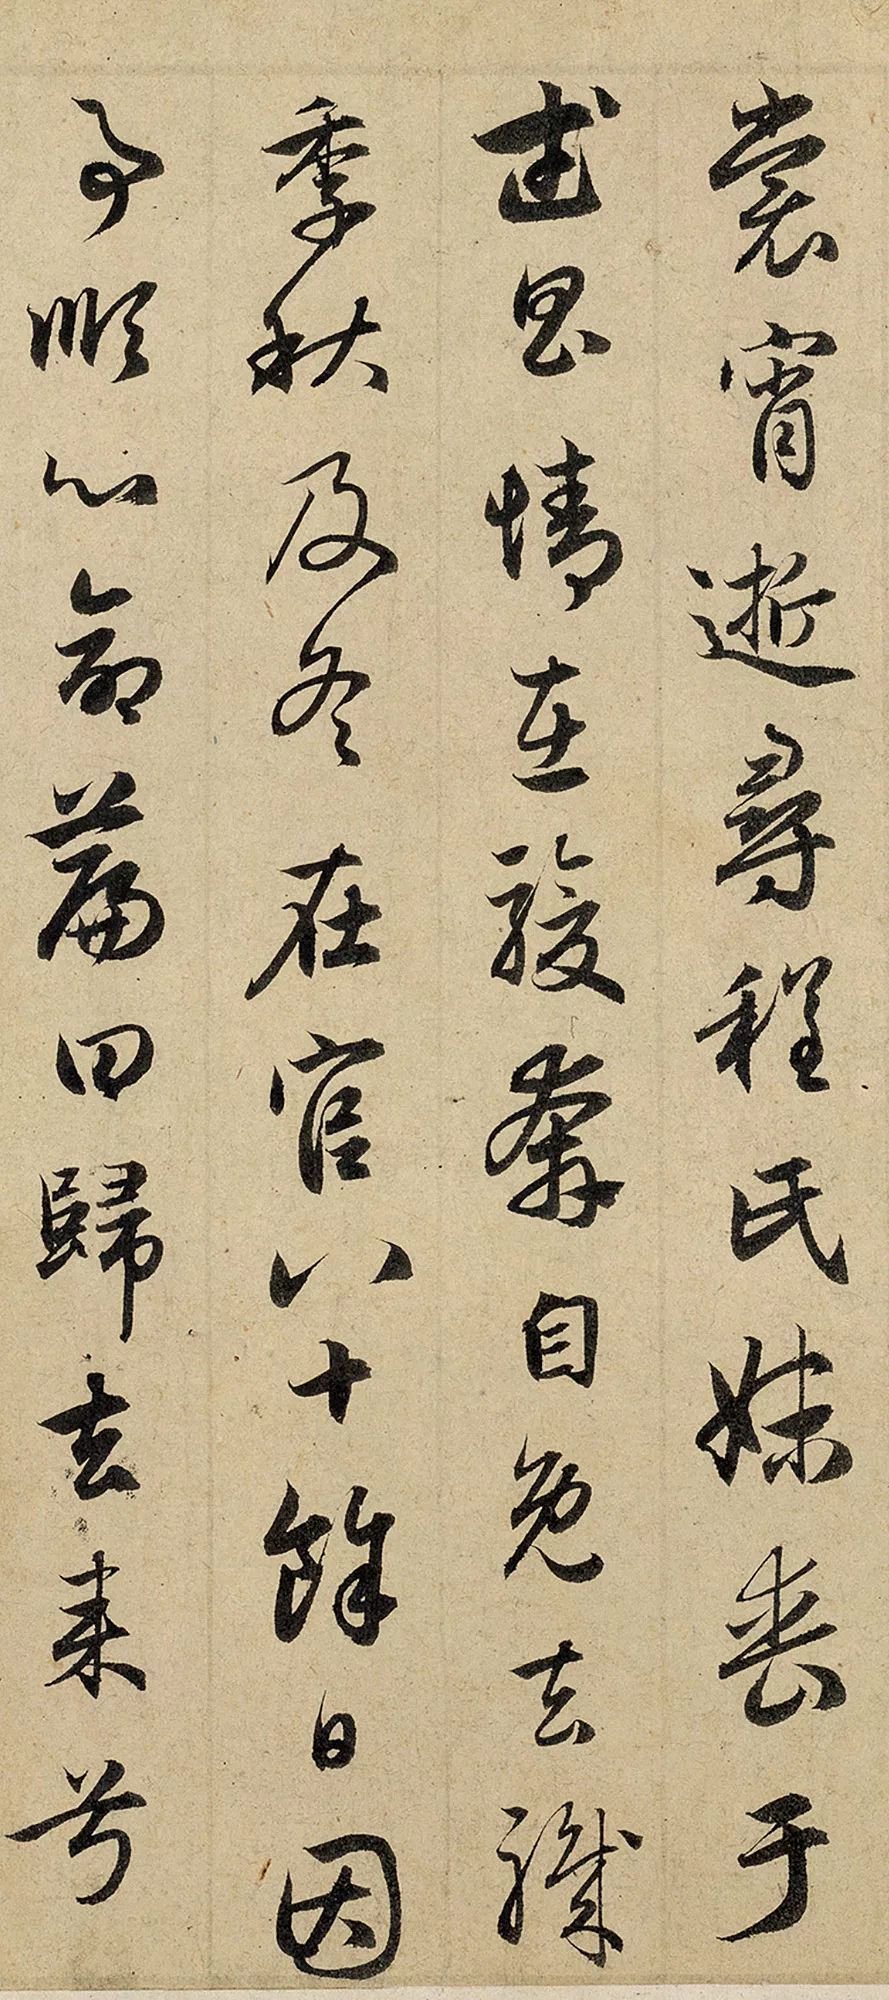 裳宵逝尋程氏妹丧于
武昌情在駿奔自免去職
季秋及冬在官八十餘日因
事順心命篇曰歸去来兮